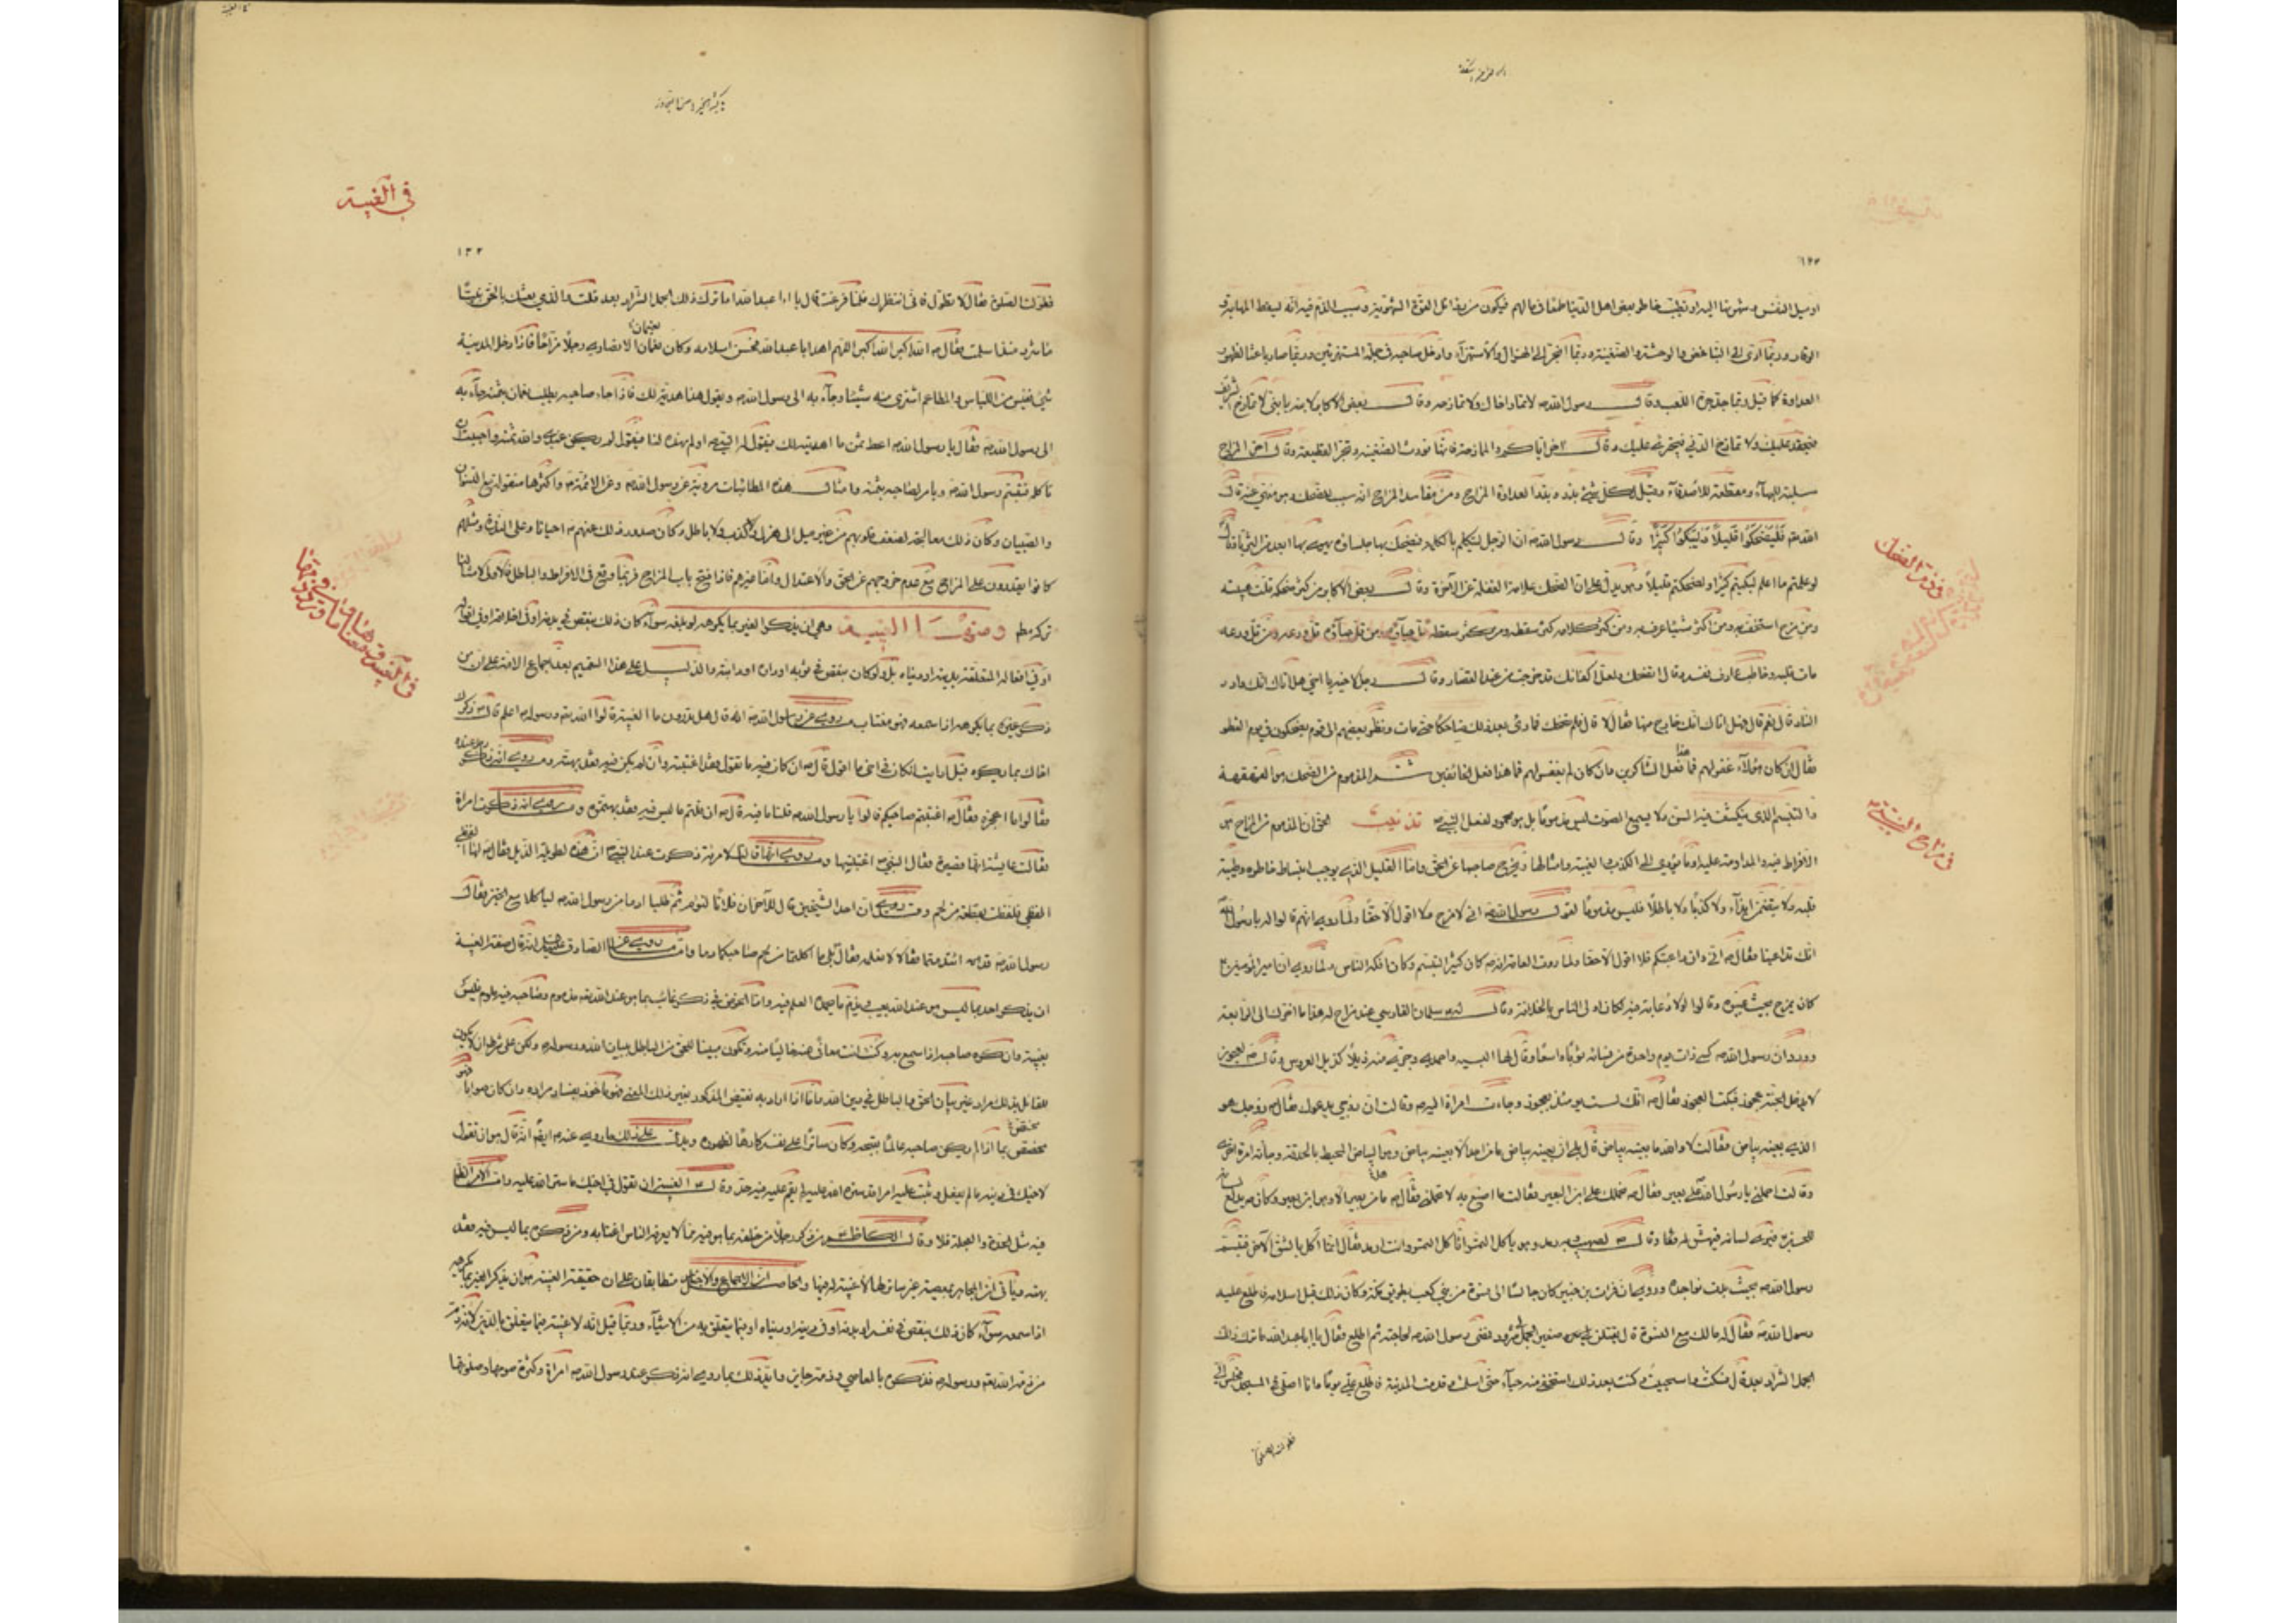 او ميل النفس و شهوتها اليه او تطييب خاطر بعض اهل الدنيا طمعا في مالهم فيكون من رذائل القوة الشهوية و سبب الذم فيه انه يسقط المهابة و
الوقار و ربما ادى الى التباغض و الوحشة و الضغينة و ربما انجر الى الهزل و الاستهزاء و ادخل صاحبه في جملة المستهزئين و ربما صار باعثا لظهور
العداوة كما قيل و ربما جد جره اللعب و قال رسول الله ص لا تمار اخاك و لا تمازحه و قال بعض الاكابر لابنه يا بني لا تمازح الشريف
فيحقد عليك و لا تمازح الدني فيجترئ عليك و قال اخر اياكم و الممازحة فانها تورث الضغينة و تجر القطيعة و قال اخر المزاح
مسلبة للبهاء و مقطعة للاصدقاء و قيل لكل شيء بذر و بذر العداوة المزاح و من مفاسد المزاح انه سبب للضحك و هو منهي عنه قال
الله تعالى فليضحكوا قليلا و ليبكوا كثيرا و قال رسول الله ص ان الرجل ليتكلم بالكلمة فيضحك بها جلساؤه يهوي بها ابعد من الثريا و قال
لو علمتم ما اعلم لبكيتم كثيرا و لضحكتم قليلا و هو يدل على ان الضحك علامة الغفلة عن الآخرة و قال بعض الاكابر من كثر ضحكه قلت هيبته
و من مزح استخف به و من اكثر من شيء عرف به و من كثر كلامه كثر سقطه و من كثر سقطه قل حياؤه و من قل حياؤه قل ورعه و من قل ورعه
مات قلبه و خاطب عارف نفسه و قال اتضحك و لعل اكفانك قد خرجت من عند القصار و قال رجل لاخيه يا اخي هل اتاك انك وارد
النار قال نعم قال فهل اتاك انك خارج منها فقال لا قال ففيم الضحك فما رئي بعد ذلك ضاحكا حتى مات و نظر بعضهم الى قوم يضحكون في يوم الفطر
فقال ان كان هؤلاء غفر لهم فما هذا فعل الشاكرين و ان كان لم يغفر لهم فما هذا فعل الخائفين ثم المذموم من الضحك هو القهقهة
و التبسم الذي ينكشف فيه السن و لا يسمع الصوت ليس مذموما بل هو محمود لفعل النبي ص تذنيب الحق ان المذموم من المزاح هو
الافراط فيه و المداومة عليه او ما يؤدي الى الكذب و الغيبة و امثالها و يخرج صاحبها عن الحق و اما القليل الذي يوجب انبساط خاطره و طيبة
قلبه و لا يتضمن ايذاء و لا كذبا و لا باطلا فليس مذموما لقول رسول الله ص اني لامزح و لا اقول الا حقا و لما روي انهم قالوا له يا رسول الله
انك تداعبنا فقال ص اني و ان داعبتكم فلا اقول الا حقا و لما روت العامة انه ص كان كثير التبسم و كان افكه الناس و لما روي ان امير المؤمنين ع
كان يمزح بحيث عيره و قالوا لولا دعابة فيه لكان اولى الناس بالخلافة و قال له سلمان الفارسي عند مزاح له هذا ما اخرك الى الرابعة
و ورد ان رسول الله ص كسى ذات يوم واحدة من نسائه ثوبا واسعا و قال لها البسيه و احمدي و جري منه ذيلا كذيل العروس و قال ص لعجوز
لا يدخل الجنة عجوز فبكت العجوز فقال ص انك لست يومئذ بعجوز و جاءت امراة اليه ص و قالت ان زوجي يدعوك فقال ص زوجك هو
الذي بعينه بياض فقالت لا و الله ما بعينه بياض قال بلى ان بعينه بياض ما من احد الا بعينه بياض و هو البياض المحيط بالحدقة و جاءته امراة اخرى
و قالت احملني يا رسول الله على بعير فقال ص نحملك على ابن البعير فقالت ما اصنع به لا يحملني فقال ص هل من بعير الا و هو ابن بعير و كان ص يدلع لسانه
للحسين ع فيرى لسانه فيهش له و قال ص لصهيب و به رمد و هو ياكل التمر اتاكل التمر و انت ارمد فقال انما آكل بالشق الآخر فتبسم
رسول الله ص بحيث بدت نواجذه و روي ان خوات بن جبير كان جالسا الى نسوة من بني كعب بطريق مكة و كان ذلك قبل اسلامه فطلع عليه
رسول الله ص فقال له ما لك مع النسوة قال يفتلن ضفيرا لجمل لي شرود فمضى رسول الله ص لحاجته ثم طلع فقال يا ابا عبد الله ما ترك ذلك
الجمل الشراد بعد قال فسكت و استحييت و كنت بعد ذلك استخفي منه حياء حتى اسلمت و قدمت المدينة فاطلع علي يوما و انا اصلي في المسجد فجلس الي
فطولت الصلوة
في ذم الضحك
في مزاح النبي ص
١٣٣
في الغيبة
فطولت الصلوة فقال لا تطول فاني انتظرك فلما فرغت قال يا ابا عبد الله اما ترك ذلك الجمل الشراد بعد فقلت و الذي بعثك بالحق نبيا
ما شرد منذ اسلمت فقال ص الله اكبر الله اكبر اللهم اهد ابا عبد الله فحسن اسلامه و كان نعمان الانصاري رجلا مزاحا فاذا دخل المدينة
نعيمان
شيء نفيس من اللباس و المطاعم اشترى منه شيئا و جاء به الى رسول الله ص و يقول هذا هدية لك فاذا جاء صاحبه يطلب نعمان بثمنه جاء به
الى رسول الله ص فقال يا رسول الله ص اعط ثمن ما اهديته لك فيقول له النبي ص او لم تهده لنا فيقول لم يكن عندي و الله ثمنه و احببت ان
تاكله فتبسم رسول الله ص و يامر لصاحبه بثمنه و امثال هذه المطايبات مروية عن رسول الله ص و عن الائمة ع و اكثرها منقولة مع النسوان
و الصبيان و كان ذلك معالجة لضعف قلوبهم من غير ميل الى هزل و لا كذب و لا باطل و كان صدور ذلك عنهم ع احيانا و على الندرة و مثلهم
كانوا يقدرون على المزاح مع عدم خروجهم عن الحق و الاعتدال و اما غيرهم فاذا فتح باب المزاح فربما وقع في الافراط و الباطل فالاولى لامثالنا
تركه مطلقا و منها الغيبة و هي ان يذكر الغير بما يكرهه لو بلغه سواء كان ذلك بنقص في بدنه او في اخلاقه او في اقواله
او في افعاله المتعلقة بدينه او دنياه بل و لو كان بنقص في ثوبه او داره او دابته و الدليل على هذا التعميم بعد اجماع الامة على ان من
ذكر غيره بما يكرهه اذا سمعه فهو مغتاب ما روي عن رسول الله ص انه قال هل تدرون ما الغيبة قالوا الله و رسوله اعلم قال ص ذكرك
اخاك بما يكره قيل ارايت ان كان في اخي ما اقول قال ص ان كان فيه ما تقول فقد اغتبته و ان لم يكن فيه فقد بهته و ما روي انه ذكر رجل عنده
فقالوا ما اعجزه فقال ص اغتبتم صاحبكم قالوا يا رسول الله ص قلنا ما فيه قال ص ان قلتم ما ليس فيه فقد بهتموه و ما روي انه ذكرت امراة
فقالت عايشة انها قصيرة فقال النبي ص اغتبتيها و ما روي انها قالت لامراة ذكرت عند النبي ص ان هذه لطويلة الذيل فقال ص لها الفظي
الفظي فلفظت بضعة من لحم و ما روي ان احد الشيخين قال للآخر ان فلانا لنؤوم ثم طلبا ادما من رسول الله ص لياكلا مع الخبز فقال
رسول الله ص قد ائتدمتما فقالا لا نعلمه فقال بلى ما اكلتما من لحم صاحبكما و ما روي عن الصادق ع انه قال صفة الغيبة
ان يذكر احد بما ليس هو عند الله بعيب و يذم ما يحمده العلم فيه و اما الخوض في ذكر غائب بما هو عند الله مذموم و صاحبه فيه ملوم فليس
بغيبة و ان كره صاحبه اذا سمع به و كنت انت معافى عنه خاليا منه و تكون مبينا للحق من الباطل ببيان الله و رسوله ص و لكن على شرط ان لا يكون
للقائل بذلك مراد غير بيان الحق و الباطل في دين الله و اما اذا اراد به نقض المذكور بغير ذلك المعنى فهو ماخوذ بفساد مراده و ان كان صوابا فهو
مختص بما اذا لم يكن صاحبه عالما بقبحه و كان ساترا على نفسه كارها لظهوره و يدل على ذلك ما روي عنه ايضا انه قال هو ان تقول
لاخيك في دينه ما لم يفعل و تبث عليه امرا قد ستره الله عليه لم يقم عليه فيه حد و قال ع الغيبة ان تقول في اخيك ما ستره الله عليه و اما الامر الظاهر
فيه مثل الحدة و العجلة فلا و قال الكاظم ع من ذكر رجلا من خلفه بما هو فيه مما لا يعرفه الناس اغتابه و من ذكره بما ليس فيه فقد
بهته و ياتي ان المجاهر بمعصية غير ساتر لها لا غيبة له فيها و الحاصل ان الاجماع و الاخبار متطابقان على ان حقيقة الغيبة هو ان يذكر الغير بما يكرهه
اذا سمعه سواء كان ذلك بنقص في نفسه او بدنه او في دينه او دنياه او فيما يتعلق به من الاشياء و ربما قيل انه لا غيبة فيما يتعلق بالدين لانه ذم
من ذمه الله و رسوله ص فذكره بالمعاصي و ذمه جايز و ايد ذلك بما روي انه ذكر عند رسول الله ص امراة و كثرة صومها و صلوتها